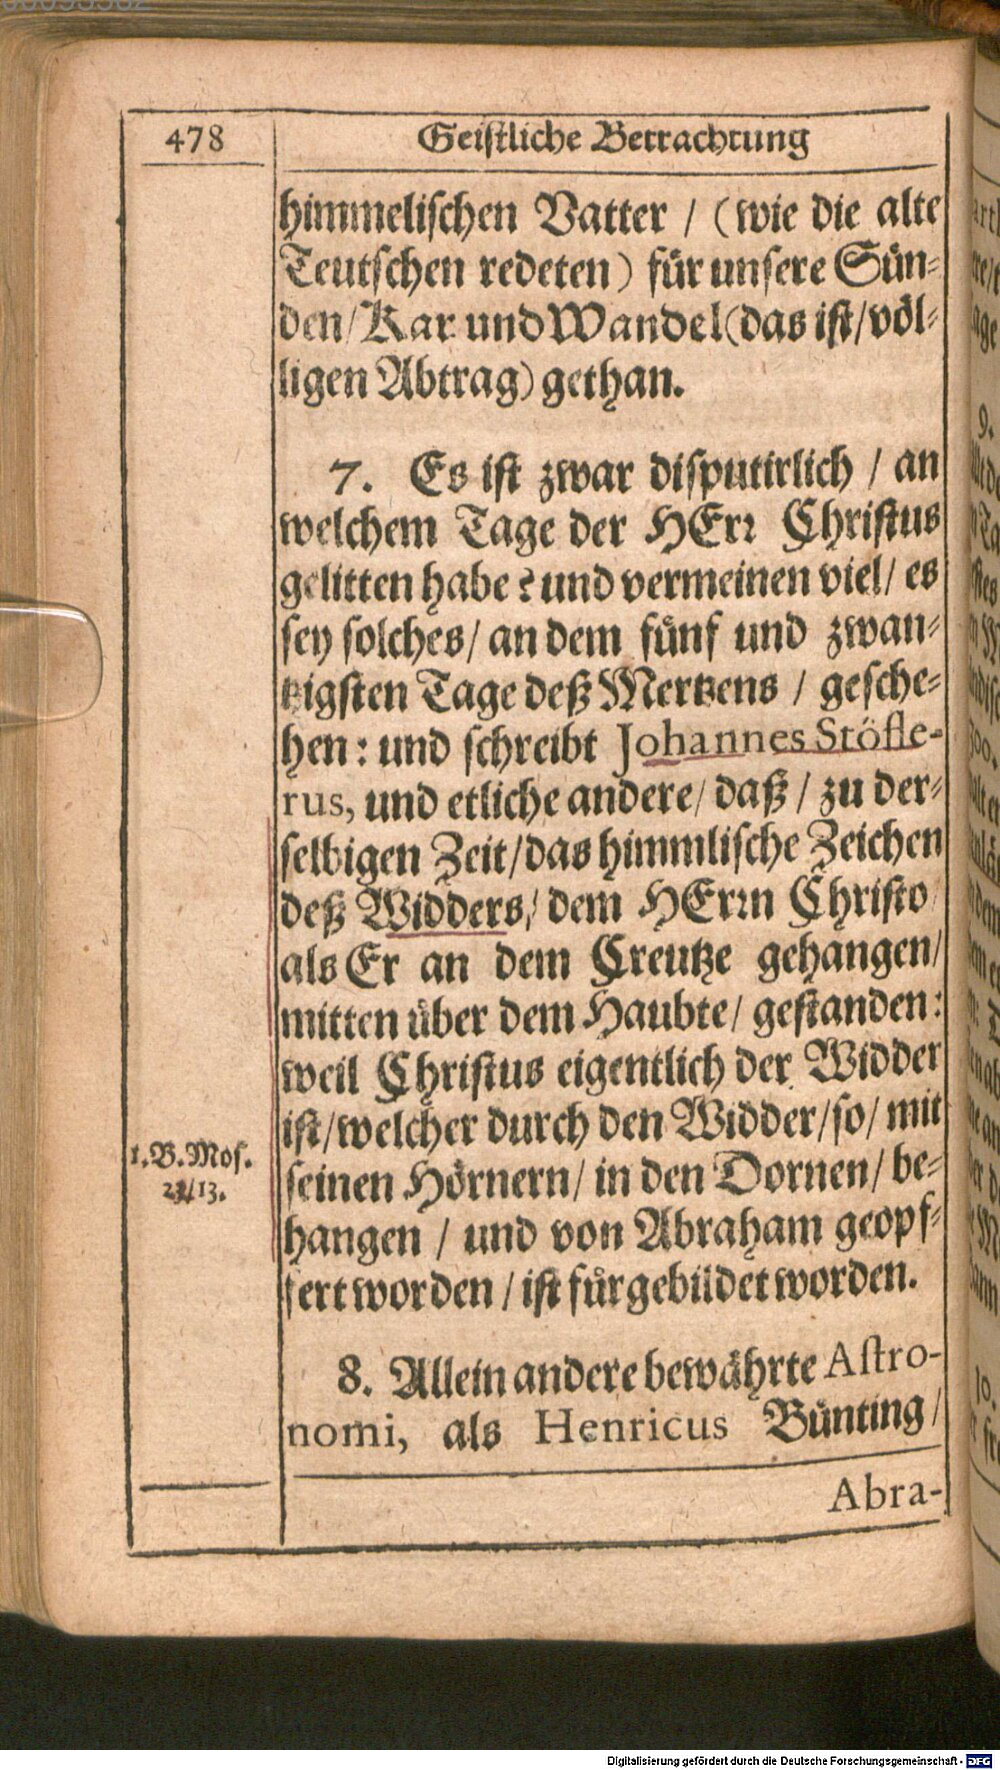 478
Geistliche Betrachtung
himmelischen Vatter / (wie die alte
Teutschen redeten) für unsere Sün-
den/ Kar und Wandel (das ist/ völ-
ligen Abtrag) gethan.
7. Es ist zwar disputirlich / an
welchem Tage der HErr Christus
gelitten habe? und vermeinen viel/ es
sey solches/ an dem fünf und zwan-
tzigsten Tage deß Mertzens / gesche-
hen: und schreibt Johannes Stöfle-
rus, und etliche andere/ daß / zu der-
selbigen Zeit/ das himmlische Zeichen
deß Widders/ dem HErrn Christo/
als Er an dem Creutze gehangen/
mitten über dem Haubte/ gestanden:
weil Christus eigentlich der Widder
ist/ welcher durch den Widder/ so/ mit
1. B. Mos.
seinen Hörnern/ in den Dornen/ be-
hangen / und von Abraham geopf-
fert worden / ist fürgebildet worden.
8. Allein andere bewährte Astro-
nomi, als Henricus Bünting/
Abra-
Digitalisierung gefördert durch die Deutsche Forschungsgemeinschaft - DFG